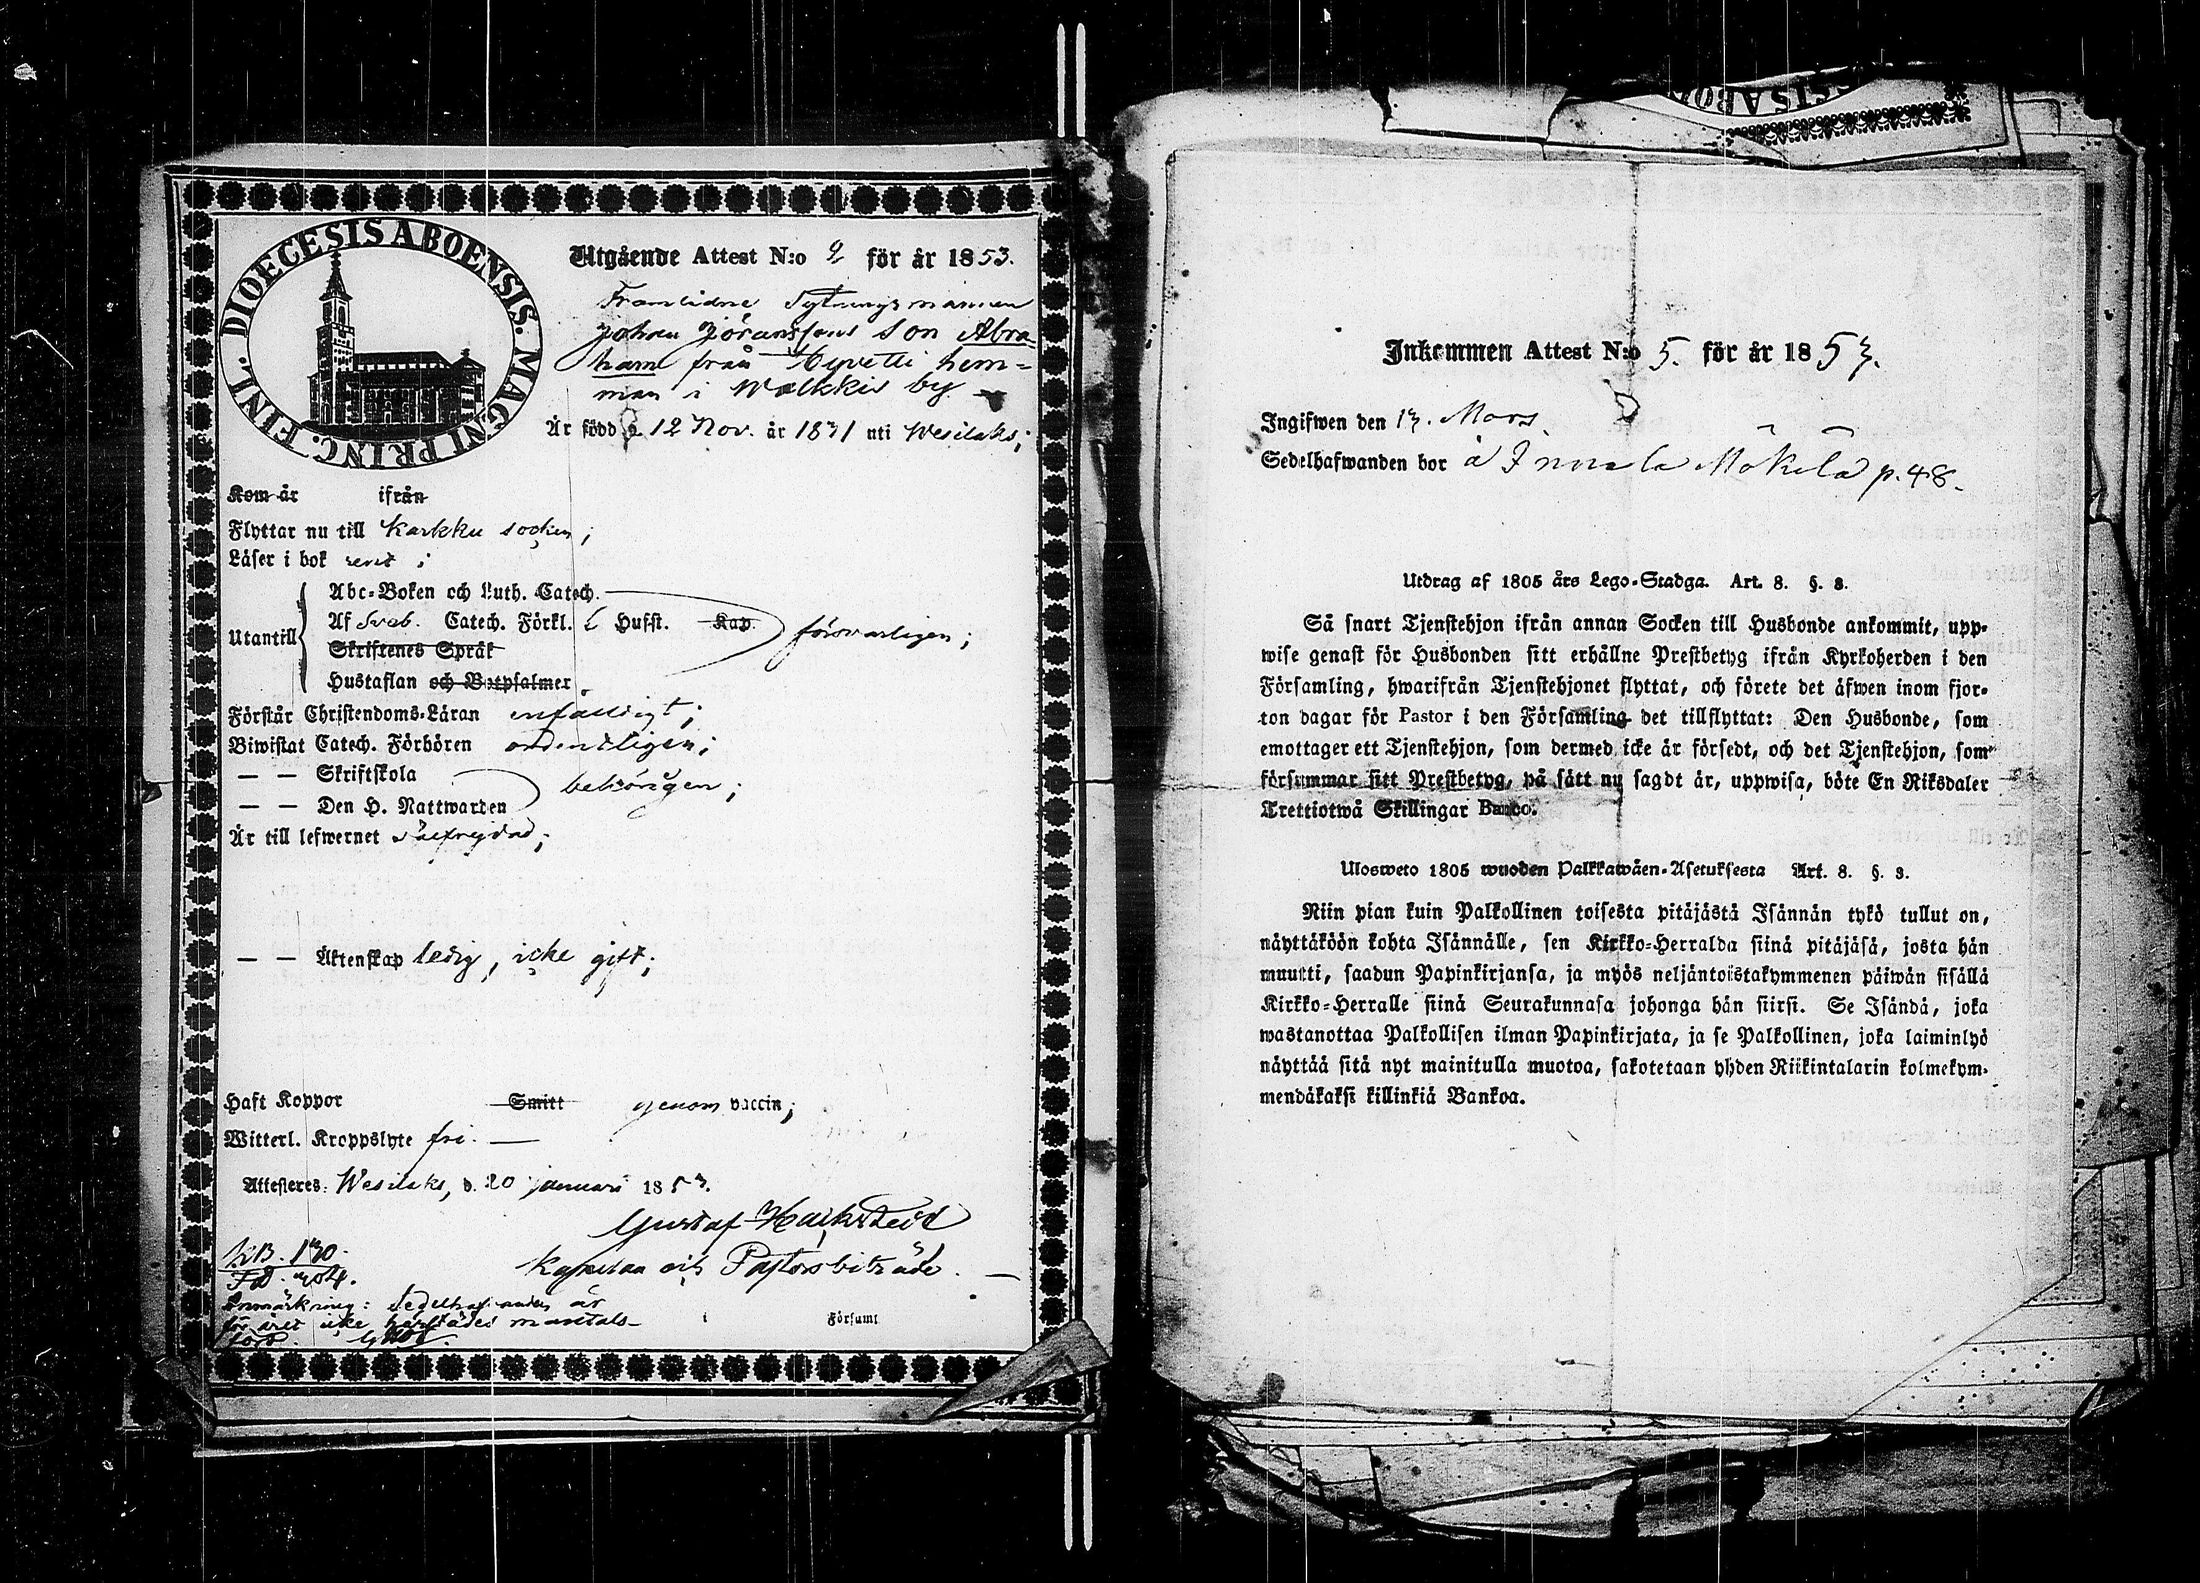 DIOECESIS ABOENSIS. MAGNI PRINC. FINL.
Utgående Attest N:o 2 för år 1853.
Framlidne Sytningsmannen
Johan Jöranssons Son Abra-
ham från Hyvetti hem-
man i Walkkis by.
Är född d. 12 Nov. år 1831 uti Wesilaks;
Kom år ifrån
Flyttar nu till Karkku socken;
Läser i bok rent;
Utantill
Abc-Boken och Luth. Catech.
Af Sveb. Catech. Förkl. 6 Hufst. Kap. försvarligen;
Skriftenes Språk
Hustaflan och Botpsalmer
Förstår Christendoms-Läran enfaldigt;
Biwistat Catech. Förhören ordentligen;
— — Skriftskola
— — Den H. Nattwarden behörigen;
Är till lefwernet välfrejdad;
— — Äktenskap ledig, icke gift;
Haft Koppor Smitt genom vaccin;
Witterl. Kroppslyte fri. —
Attesteras. Wesilaks, d. 20 januari 1853.
Gustaf
Kapellan och Pastorsbiträde. —
KB. 130.
Anmärkning: Sedelhafvanden är
för året icke härstädes mantals-
förd.
Försumt
SIS ABO
Inkommen Attest N:o 5. för år 1853.
Ingifwen den 13. Mars.
Sedelhafwanden bor å Innala Mäkilä p. 48.
Utdrag af 1805 års Lego-Stadga. Art. 8. §. 8.
Så snart Tjenstehjon ifrån annan Socken till Husbonde ankommit, upp-
wise genast för Husbonden sitt erhållne Prestbetyg ifrån Kyrkoherden i den
Församling, hwarifrån Tjenstehjonet flyttat, och förete det äfwen inom fjor-
ton dagar för Pastor i den Församling det tillflyttat: Den Husbonde, som
emottager ett Tjenstehjon, som dermed icke är försedt, och det Tjenstehjon, som
försummar sitt Prestbetyg, på sätt nu sagdt är, uppwisa, böte En Riksdaler
Trettiotwå Skillingar Banco.
Ulosweto 1805 wuoden Palkkawäen-Asetuksesta Art. 8. §. 3.
Niin pian kuin Palkollinen toisesta pitäjästä Isännän tykö tullut on,
näyttäköön kohta Isännälle, sen Kirkko-Herralda siinä pitäjäsä, josta hän
muutti, saadun Papinkirjansa, ja myös neljäntoistakymmenen päiwän sisällä
Kirkko-Herralle siinä Seurakunnasa johonga hän siirsi. Se Isändä, joka
wastanottaa Palkollisen ilman Papinkirjata, ja se Palkollinen, joka laiminlyö
näyttää sitä nyt mainitulla muotoa, sakotetaan yhden Riikintalarin kolmekym-
mendäkaksi killinkiä Bankoa.